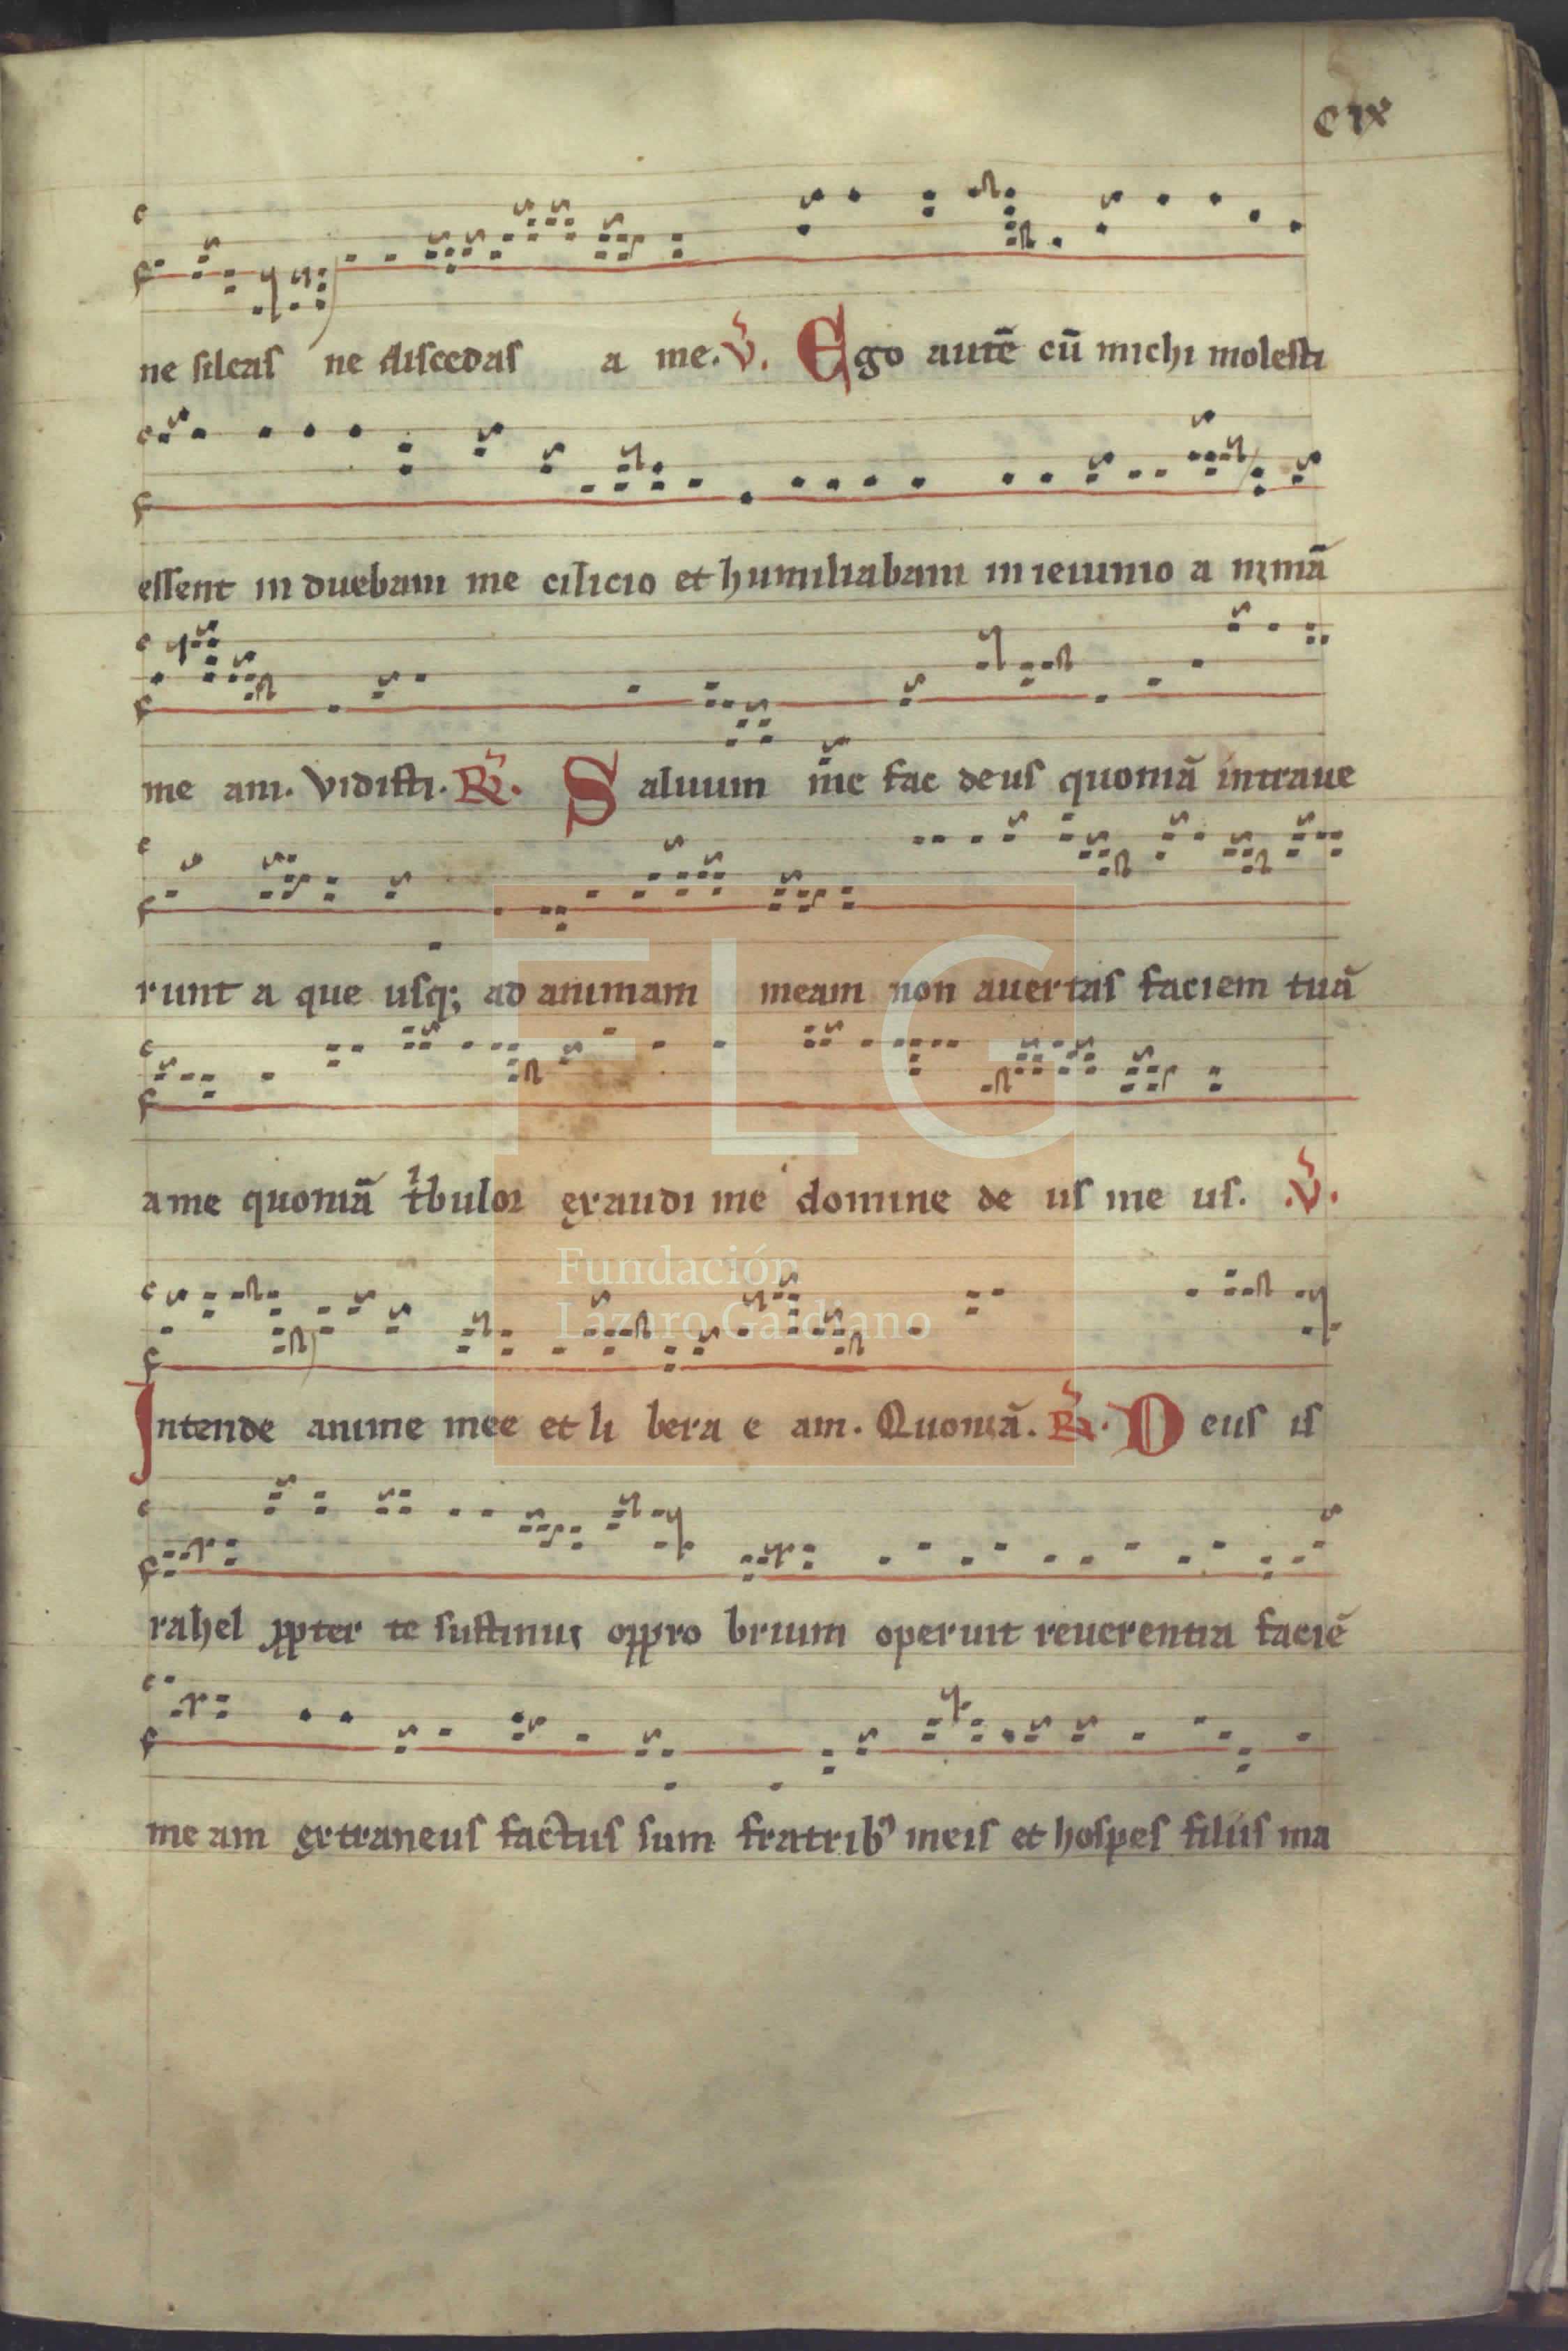 cıx
ne sileas ne discedas a me. V̄. Ego autē cū michi molesti
essent in duebam me cilicio et humiliabam in ieiunio a nimā
me am. Vidisti. R̄. Saluum me fac deus quoniā intraue
runt a que usq; ad animam meam non auertas faciem tuā
a me quoniā tⁱbulor exaudi me domine de us me us. V̄.
Intende anime mee et li bera e am. Quoniā. R̄. Deus is
rahel ꝓpter te sustinui oppro brium operuit reuerentia faciē
me am extraneus factus sum fratrib⁹ meis et hospes filiis ma
FLG
Fundación
Lázaro Galdiano